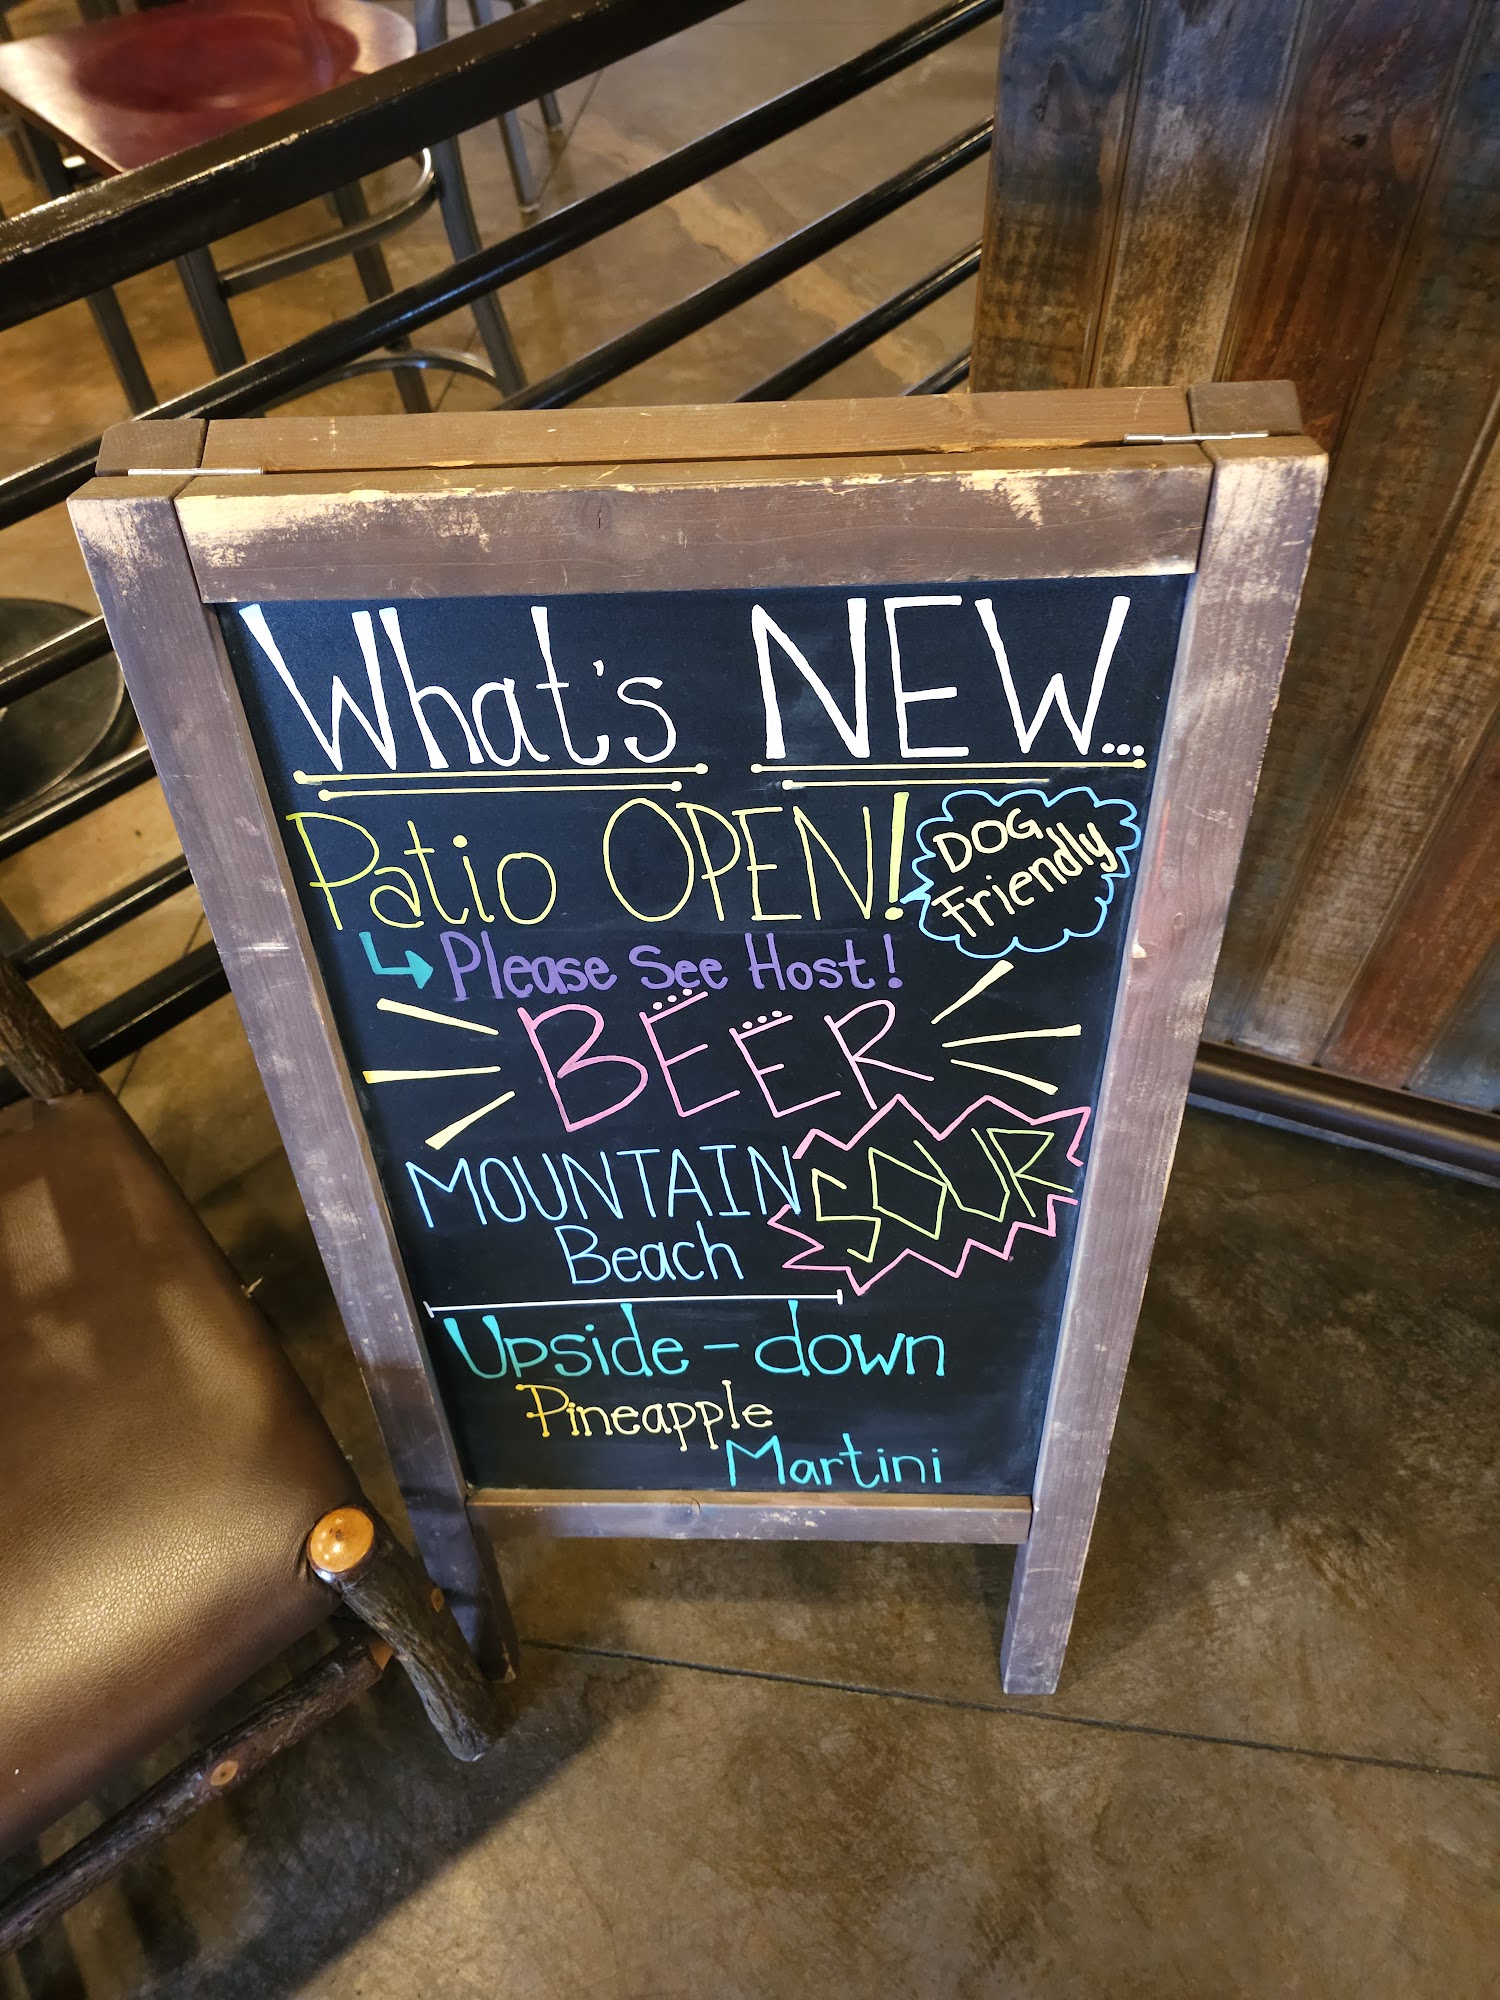 What's NEW...
Patio OPEN!
DOG
Friendly
Please See Host!
BEER
MOUNTAIN
Beach
SOUR
Upside-down
Pineapple
Martini